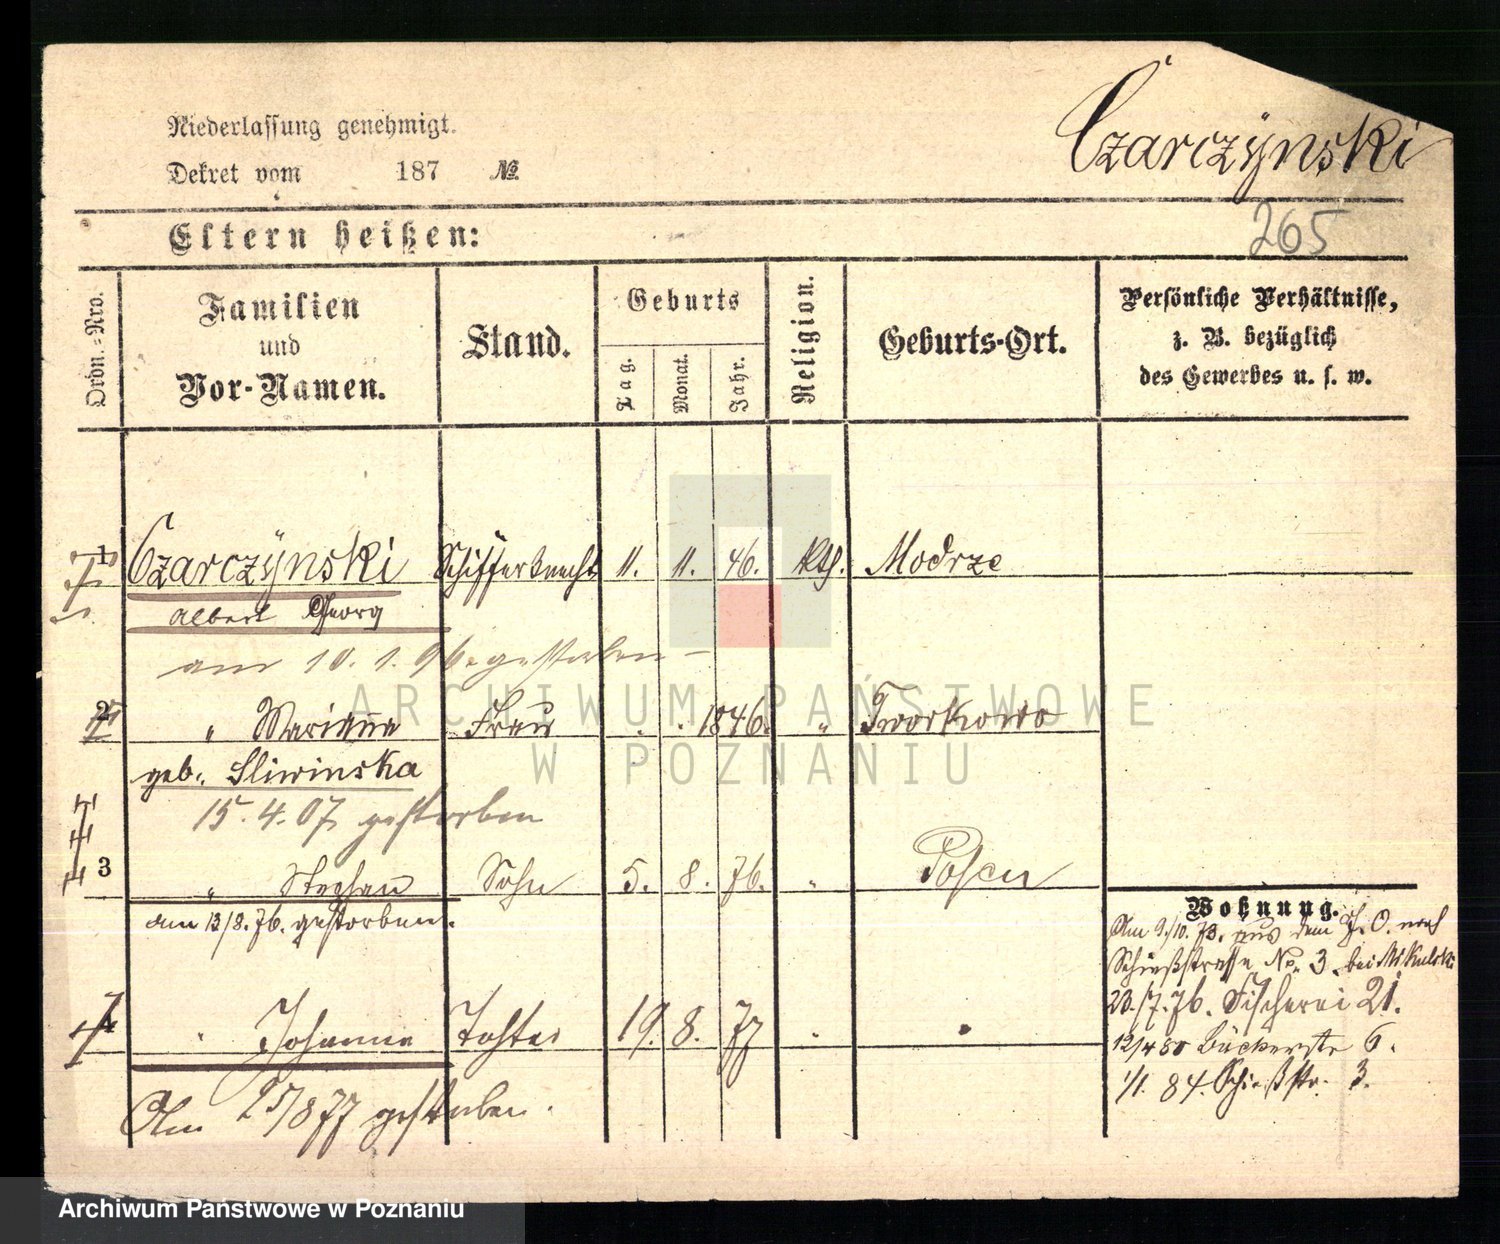 Niederlassung genehmigt.
Czarczÿnski
Dekret vom 187 №
265
Eltern heißen:
Ordn.-Nro.
Familien
und
Vor-Namen.
Stand.
Geburts
Tag.
Monat.
Jahr.
Religion.
Geburts-Ort.
Persönliche Verhältnisse,
z. B. bezüglich
des Gewerbes u. s. w.
1 Czarczÿnski Schifferknecht 11. 11. 46. kth. Modrze
Albert Georg
am 10. 1. 96 gestorben
2 " Marianna Frau . . 1846. " Tworkowo
geb. Sliwinska
15.4.07 gestorben
3 " Stephan Sohn 5. 8. 76. " Posen
am 13/8.76. gestorben.
4 " Johanna Tochter 19. 8. 77 " "
Am 25/8 77 gestorben.
Wohnung.
Am 9./10. 73. aus dem J. O. nach
Schießstrasse No. 3. bei Mikulski
23./7.76. Fischerei 21.
12/4 80 Bäckerstr 6.
1/1. 84. Schießstr. 3.
ARCHIWUM PAŃSTWOWE
W POZNANIU
Archiwum Państwowe w Poznaniu